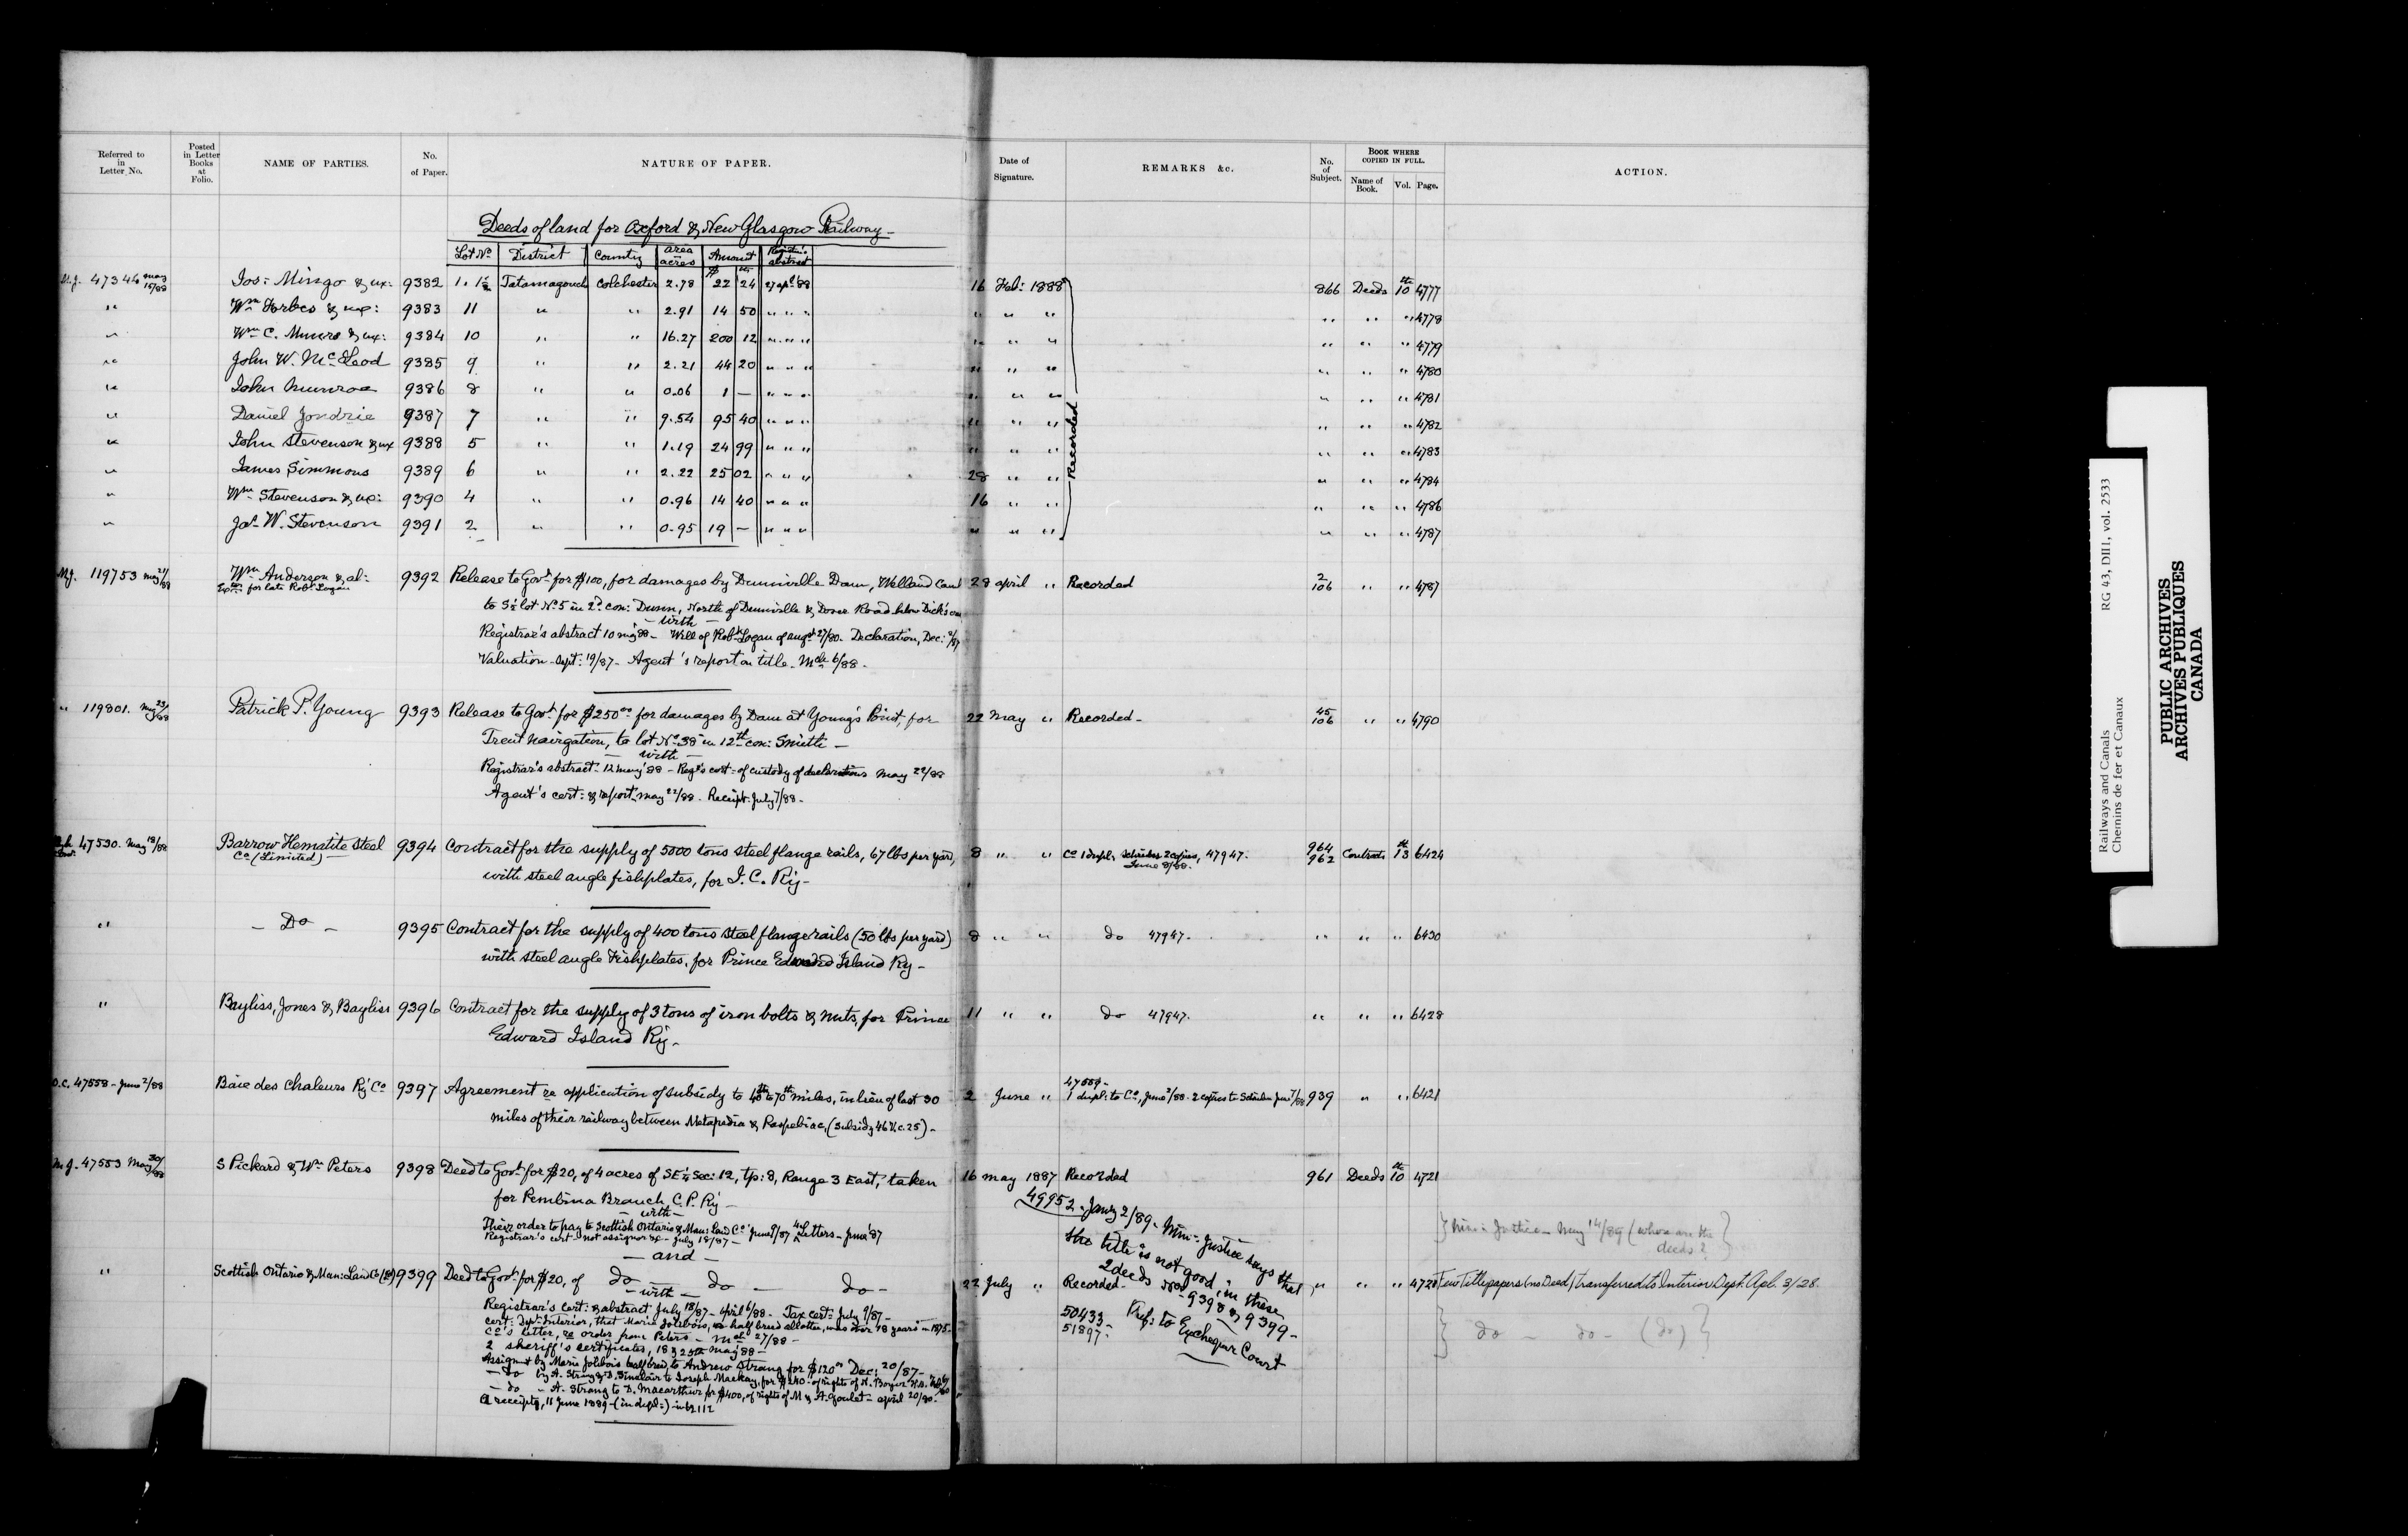 Referred to in Letter No.
Posted in Letter Books at Folio.
NAME OF PARTIES.
No. of Paper.
NATURE OF PAPER.
Date of Signature.
REMARKS &c.
No. of Subject.
BOOK WHERE COPIED IN FULL.
Name of Book. Vol. Page.
ACTION.
Deeds of land for Oxford & New Glasgow Railway -
Lot No District County area acres Amount Registr's abstract
M.J. 47346 may 15/88 Jos: Mingo & ux: 9382 1. 1½ Tatamagouch Colchester 2.78 $22 24 27 apl 88 16 Feb: 1888 866 Deeds 10th 4777
" Wm Forbes & ux: 9383 11 " " 2.91 14 50 " " " " " " " " " 4778
" Wm C. Munro & ux: 9384 10 " " 16.27 200 12 " " " " " " " " " 4779
" John W. McLeod 9385 9 " " 2.21 44 20 " " " " " " " " " 4780
" John Munroe 9386 8 " " 0.06 1 — " " " " " " " " " 4781
" Daniel Jondrie 9387 7 " " 9.54 95 40 " " " " " " " " " 4782
" John Stevenson & ux 9388 5 " " 1.19 24 99 " " " " " " " " " 4783
" James Simmons 9389 6 " " 2.22 25 02 " " " 28 " " " " " 4784
" Wm Stevenson & ux: 9390 4 " " 0.96 14 40 " " " 16 " " " " " 4786
" Jas W. Stevenson 9391 2 " " 0.95 19 — " " " " " " " " " 4787
Recorded
M.J. 119753 may 21/88 Wm Anderson & al: 9392 Release to Govt for $100, for damages by Dunnville Dam, Welland Canl 28 april " Recorded 2/106 " " 4787
Exors for late Robt Logan
to S½ lot No 5 in 2d con: Dunn, North of Dunnville & Dover Road below Dick's
— with —
Registrar's abstract 10 may 88 - Will of Robt Logan of augst 27/80. Declaration, Dec: 2/87
Valuation - Sept: 19/87 - Agent's report on title - Mch 6/88 -
" 119801. May 23/88 Patrick P. Young 9393 Release to Govt for $250.00 for damages by Dam at Young's Point, for 22 May " Recorded - 45/106 " " 4790
Trent Navigation, to lot No 38 in 12th con: Smith —
— with —
Registrar's abstract - 12 may 88 - Regr's cert: of custody of declarations May 22/88
Agent's cert: & report may 22/88. Receipt July 7/88 -
47530. May 18/88 Barrow Hematite Steel 9394 Contract for the supply of 5000 tons steel flange rails, 67 lbs per yard, 8 " " Co 1 dupl, Schreiber 2 copies, 47947. 964 962 Contracts 13th 6424
Co (Limited) —
June 8/88.
with steel angle fishplates, for I. C. Ry -
" — Do — 9395 Contract for the supply of 400 tons steel flange rails (50 lbs per yard) 8 " " do 47947. " " " 6430
with steel angle Fishplates, for Prince Edward Island Ry -
" Bayliss, Jones & Bayliss 9396 Contract for the supply of 3 tons of iron bolts & nuts, for Prince 11 " " do 47947. " " " 6428
Edward Island Ry -
O.C. 47558 - June 2/88 Baie des Chaleurs Ry Co 9397 Agreement re application of subsidy to 40th to 70th miles, in lieu of last 30 2 June " 939 " " 6421
47559 -
1 dupl: to Co, June 2/88 - 2 copies to Schreiber June 7/88
miles of their railway between Metapedia & Paspebiac, (subsidy 46 V. c. 25) -
M.J. 47553 May 30/88 S Pickard & Wm Peters 9398 Deed to Govt for $20, of 4 acres of SE¼ Sec: 12, tp: 8, Range 3 East, taken 16 may 1887 Recorded 961 Deeds 10th 4721
for Pembina Branch C. P. Ry -
— with —
Their order to pay to Scottish Ontario & Man: Land Co June 9/87 4 Letters - June '87
Registrar's cert - not assignor &c - July 18/87 -
— and —
49952 - Jany 2/89. Min: Justice says that
the title is not good in these
2 deeds Nos 9398 & 9399 -
Ref: to Exchequer Court
} Min: Justice - May 14/89 (where are the deeds?) }
" Scottish Ontario & Man: Land Co (Ld) 9399 Deed to Govt for $20, of do — do — do - 22 July " Recorded - " " " 4728 Few Title papers (no Deed) transferred to Interior Dept. Apl. 3/28.
— with —
50433 -
51897.
} do — do - (do) }
Registrar's Cert: & abstract July 18/87 - April 6/88 - Tax cert: July 9/87 -
Cert: Dept Interior, that Marie Jolibois, a half breed allottee, was over 18 years in 1875 -
Co's letter, re order from Peters - Mch 27/88 -
2 sheriff's certificates, 18 & 25th May 88 -
Assignt by Marie Jolibois half breed, to Andrew Strang for $120.00 Dec: 20/87 -
— do by A. Strang & D. Sinclair to Joseph Mackay, for $240 - of rights of
— do - A. Strang to D. Macarthur for $400, of rights of M & A. Goulet - april 20/80.
receipts, 11 June 1889 - (in dupl:) - in 62112
Railways and Canals RG 43, DIII, vol. 2533
Chemins de fer et Canaux
PUBLIC ARCHIVES
ARCHIVES PUBLIQUES
CANADA